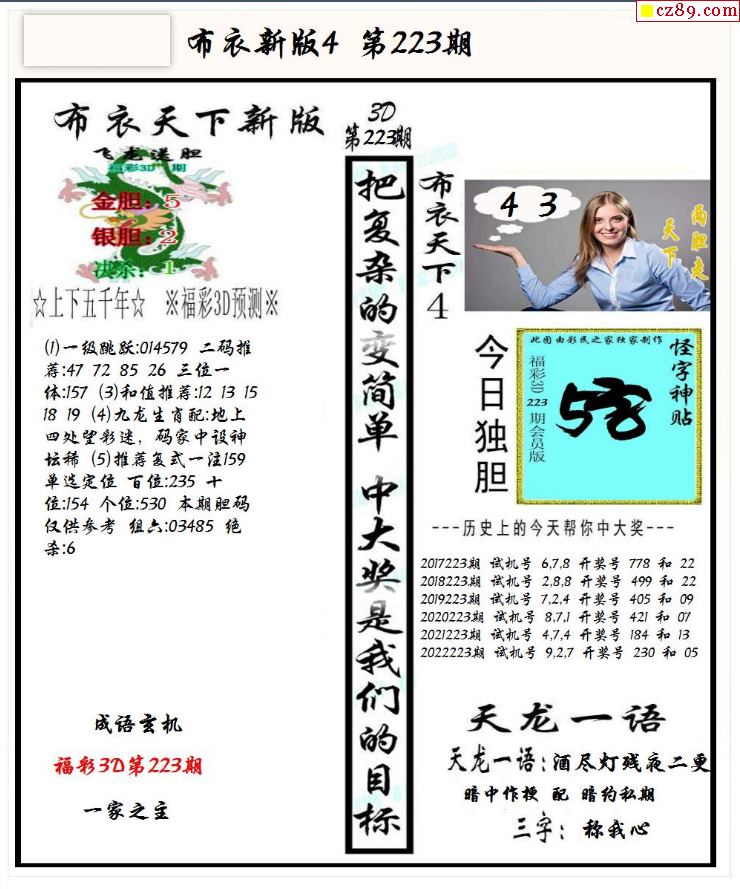 cz89.com
布衣新版4 第223期
布衣天下新版
飞龙送胆
福彩3D 期
金胆：5
银胆：2
决杀：1
☆上下五千年☆ ※福彩3D预测※
(1)一级跳跃:014579 二码推
荐:47 72 85 26 三位一
体:157 (3)和值推荐:12 13 15
18 19 (4)九龙生肖配:地上
四处望彩迷，码家中设神
坛稀 (5)推荐复式一注159
单选定位 百位:235 十
位:154 个位:530 本期胆码
仅供参考 组六:03485 绝
杀:6
成语玄机
福彩3D第223期
一家之主
3D
第223期
把复杂的变简单 中大奖是我们的目标
布衣天下4
4 3
两胆走
天下
今日独胆
此图由彩民之家独家制作
福彩3D 223 期会员版
怪字神贴
---历史上的今天帮你中大奖---
2017223期 试机号 6,7,8 开奖号 778 和 22
2018223期 试机号 2,8,8 开奖号 499 和 22
2019223期 试机号 7,2,4 开奖号 405 和 09
2020223期 试机号 8,7,1 开奖号 421 和 07
2021223期 试机号 4,7,4 开奖号 184 和 13
2022223期 试机号 9,2,7 开奖号 230 和 05
天龙一语
天龙一语:酒尽灯残夜二更
暗中作梗 配 暗约私期
三字： 称我心